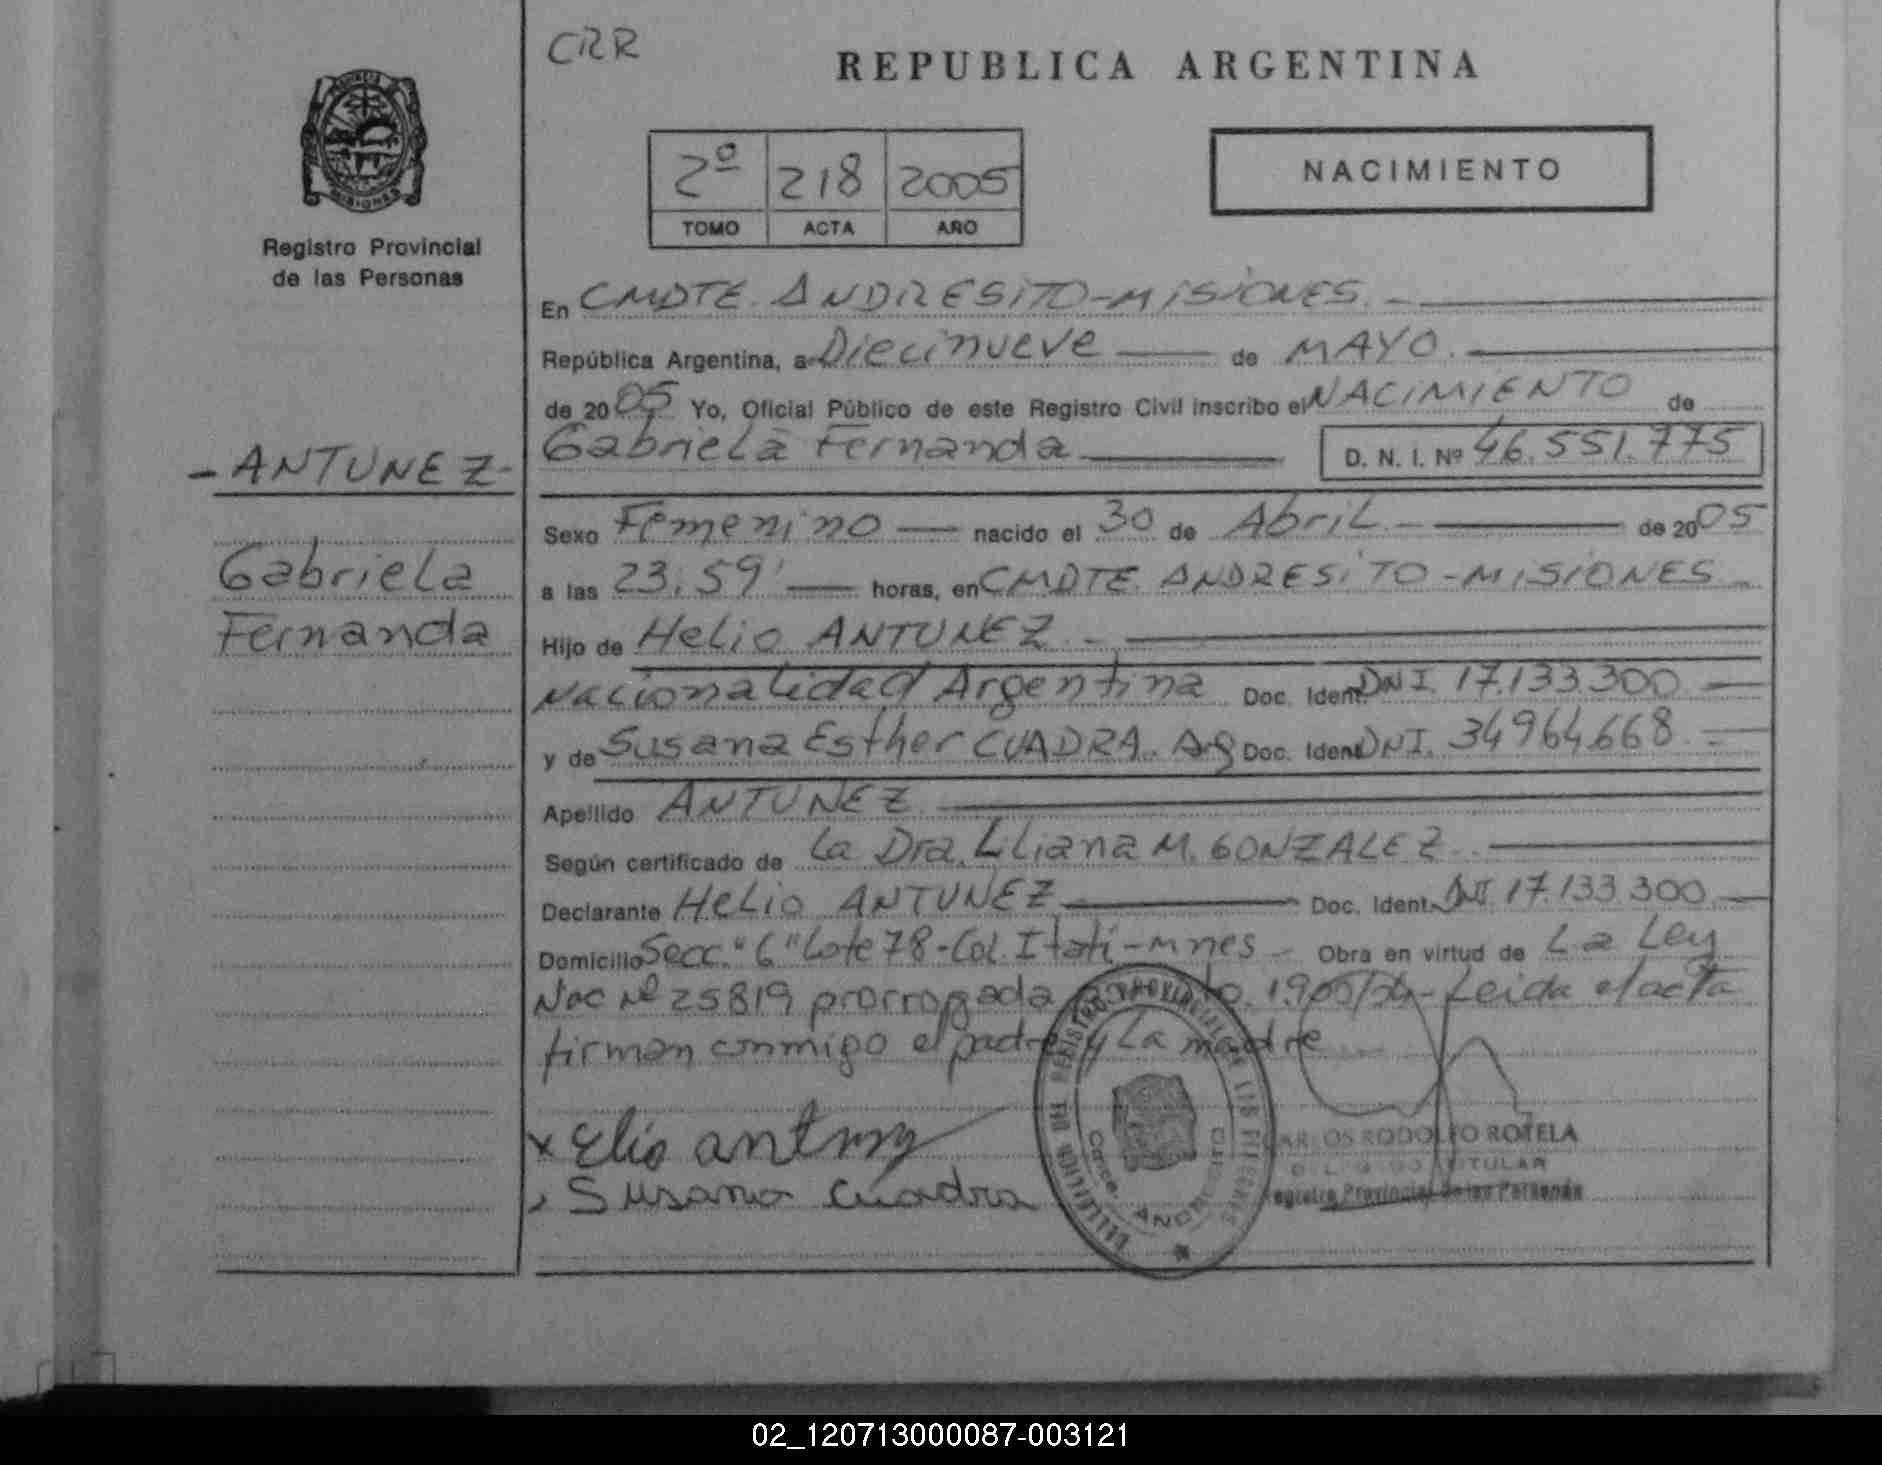 CRR
REPUBLICA ARGENTINA
PROVINCIA DE
MISIONES
Registro Provincial
de las Personas
2º 218 2005
TOMO ACTA AÑO
NACIMIENTO
En CMDTE. ANDRESITO-MISIONES.-
República Argentina, a Diecinueve de MAYO.
de 2005 Yo, Oficial Público de este Registro Civil inscribo el NACIMIENTO de
-ANTUNEZ-
Gabriela Fernanda D. N. I. Nº 46.551.775
Sexo Femenino nacido el 30 de Abril.- de 2005
Gabriela
Fernanda
a las 23:59' horas, en CMDTE. ANDRESITO-MISIONES
Hijo de Helio ANTUNEZ.-
Nacionalidad Argentina Doc. Ident. DNI 17.133.300
y de Susana Esther CUADRA. Arg Doc. Ident. DNI. 34964668.-
Apellido ANTUNEZ.
Según certificado de La Dra. Liliana M. GONZALEZ.
Declarante Helio ANTUNEZ Doc. Ident. DNI. 17.133.300
Domicilio Secc. "6" Lote 78-Col. Itati-Mnes Obra en virtud de La Ley
Nac Nº 25819 prorrogada Leida el acta
firman conmigo el padre y La madre
x Elio antunez
Susana Cuadra
CARLOS RODOLFO ROTELA
TITULAR
Registro Provincial de las Personas
02_120713000087-003121